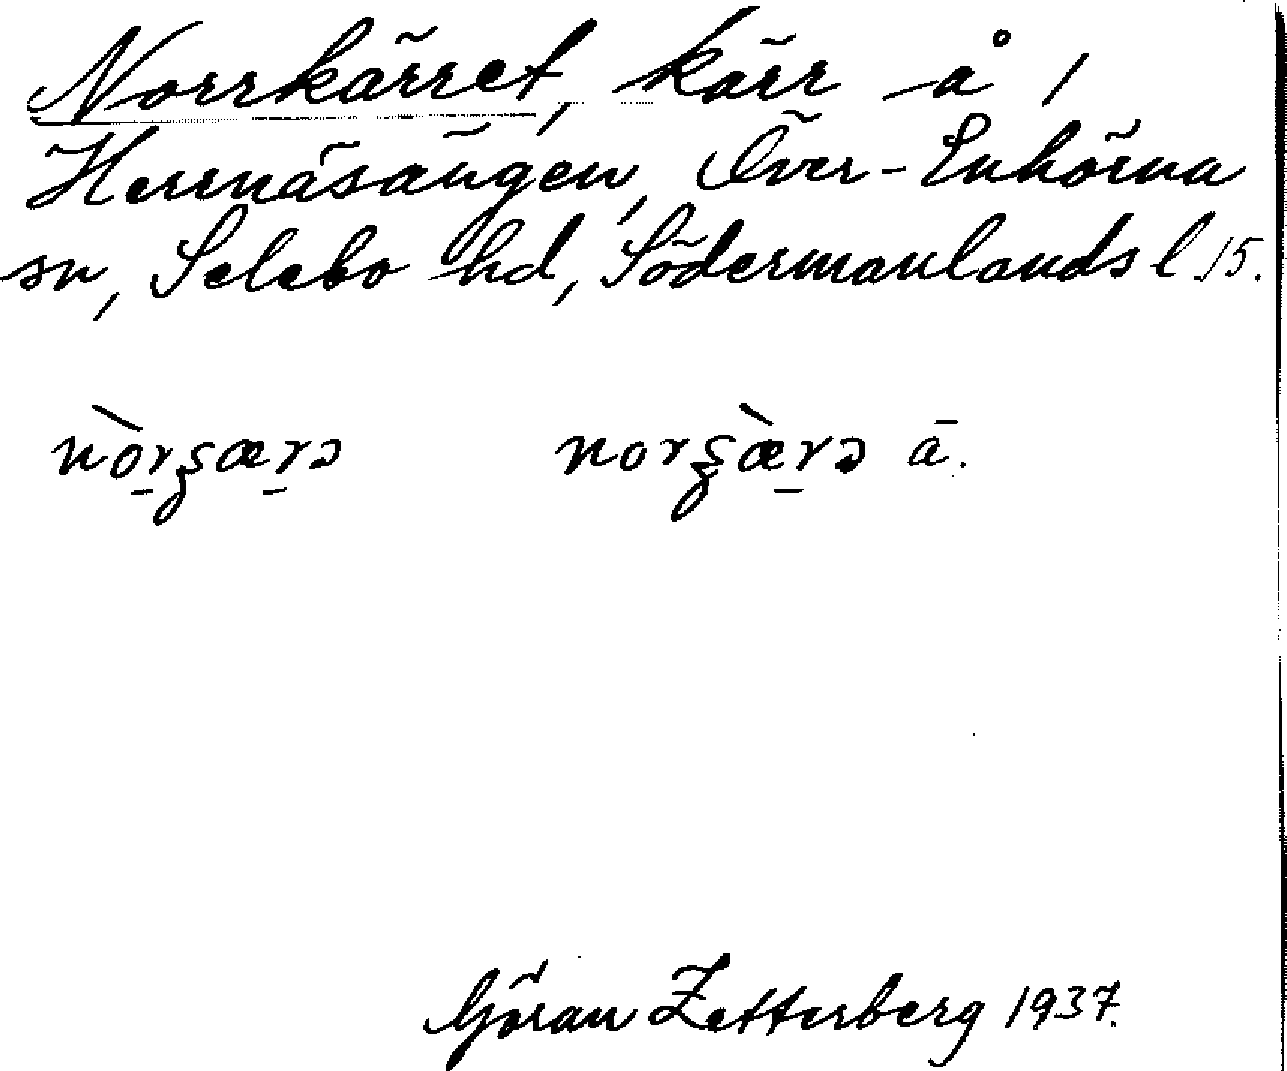 Norrkärret, kärr å 1
Herrnäsängen, Över-Enhörna
sn, Selebo hd, Södermanlands l 15.
nòrʂærə norʂæ̀rə ā.
Göran Zetterberg 1937.